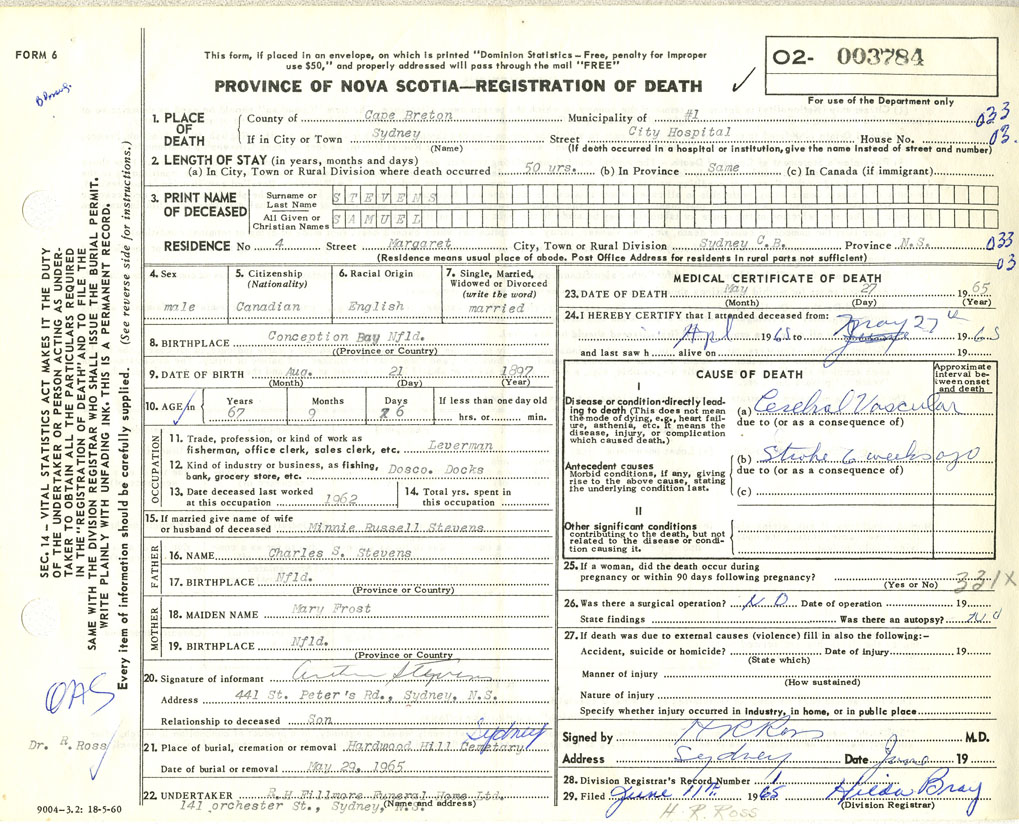 FORM 6
This form, if placed in an envelope, on which is printed "Dominion Statistics—Free, penalty for improper
use $50," and properly addressed will pass through the mail "FREE"
PROVINCE OF NOVA SCOTIA—REGISTRATION OF DEATH ✓
02- 003784
For use of the Department only
1. PLACE OF DEATH
County of Cape Breton Municipality of #1 033
If in City or Town Sydney Street City Hospital House No. 03.
(Name) (If death occurred in a hospital or institution, give the name instead of street and number)
2. LENGTH OF STAY (in years, months and days)
(a) In City, Town or Rural Division where death occurred 50 yrs. (b) In Province Same (c) In Canada (if immigrant)
3. PRINT NAME OF DECEASED
Surname or Last Name STEVENS
All Given or Christian Names SAMUEL
RESIDENCE No 4 Street Margaret City, Town or Rural Division Sydney C.B. Province N.S. 033
(Residence means usual place of abode. Post Office Address for residents in rural parts not sufficient) 03
4. Sex
male
5. Citizenship
(Nationality)
Canadian
6. Racial Origin
English
7. Single, Married,
Widowed or Divorced
(write the word)
married
8. BIRTHPLACE Conception Bay Nfld.
((Province or Country)
9. DATE OF BIRTH Aug. 21 1897
(Month) (Day) (Year)
10. AGE in Years Months Days If less than one day old
67 9 6 hrs. or min.
OCCUPATION
11. Trade, profession, or kind of work as
fisherman, office clerk, sales clerk, etc. Leverman
12. Kind of industry or business, as fishing,
bank, grocery store, etc. Dosco. Docks
13. Date deceased last worked
at this occupation 1962
14. Total yrs. spent in
this occupation
15. If married give name of wife
or husband of deceased Minnie Russell Stevens
FATHER
16. NAME Charles S. Stevens
17. BIRTHPLACE Nfld.
(Province or Country)
MOTHER
18. MAIDEN NAME Mary Frost
19. BIRTHPLACE Nfld.
(Province or Country
20. Signature of informant Stevens
Address 441 St. Peter's Rd., Sydney, N.S.
Relationship to deceased Son
Sydney
21. Place of burial, cremation or removal Hardwood Hill Cemetary
Date of burial or removal May 29, 1965
22. UNDERTAKER R.H.Fillmore Funeral Home Ltd.
(Name and address)
141 orchester St., Sydney, N.S.
MEDICAL CERTIFICATE OF DEATH
23. DATE OF DEATH May 27 1965
(Month) (Day) (Year)
24. I HEREBY CERTIFY that I attended deceased from:
Apl 1965 to May 27th 1965
and last saw h alive on 19
CAUSE OF DEATH
Approximate interval between onset and death
I
Disease or condition directly leading to death (This does not
mean the mode of dying, e.g., heart failure, asthenia, etc. It means the
disease, injury, or complication
which caused death.)
(a) Cerebral Vascular
due to (or as a consequence of)
Antecedent causes
Morbid conditions, if any, giving
rise to the above cause, stating
the underlying condition last.
(b) Stroke 6 weeks ago
due to (or as a consequence of)
(c)
II
Other significant conditions
contributing to the death, but not
related to the disease or condition
causing it.
25. If a woman, did the death occur during
pregnancy or within 90 days following pregnancy?
(Yes or No) 331X
26. Was there a surgical operation? NO Date of operation 19
State findings Was there an autopsy? No
27. If death was due to external causes (violence) fill in also the following:—
Accident, suicide or homicide? Date of injury 19
(State which)
Manner of injury
(How sustained)
Nature of injury
Specify whether injury occurred in industry, in home, or in public place
Signed by H R Ross M.D.
Address Sydney Date June 19
28. Division Registrar's Record Number 1
29. Filed June 11th 1965 Hilda Bray
(Division Registrar)
H. R. Ross
SEC. 14 – VITAL STATISTICS ACT MAKES IT THE DUTY
OF THE UNDERTAKER OR PERSON ACTING AS UNDER-
TAKER TO OBTAIN ALL THE PARTICULARS REQUIRED
IN THE "REGISTRATION OF DEATH" AND TO FILE THE
SAME WITH THE DIVISION REGISTRAR WHO SHALL ISSUE THE BURIAL PERMIT.
WRITE PLAINLY WITH UNFADING INK. THIS IS A PERMANENT RECORD.
Every item of information should be carefully supplied. (See reverse side for instructions.)
OAS
Dr. R. Ross
9004–3.2: 18-5-60